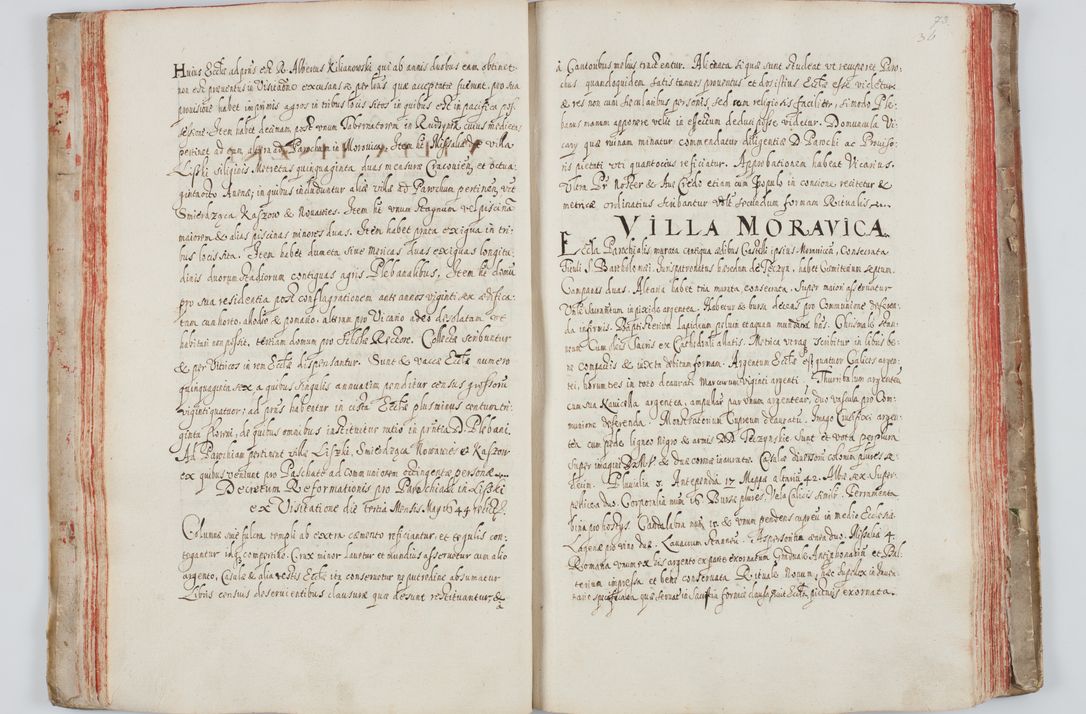 Huius Eccłae adprns est R. Albertus Kilianowski qui ab annis duobus eam obtinet
non est praeventus in Visitaone excusans se pro
provisione habet imprimis agros in tribus locis sitos in quibus est in pacifica pos
sessione. Item habet decimam post unum Tabernatorem in cuius medietas
pertinet ad eum altera ad Parochum in Morawica. Item ht Missalia de villa
Liszki siliginis Metretas quinquaginta duas mensurae Cracovien et octua-
ginta octo Avenae; in quibus includuntur aliae villae ad Parochum pertinen, utē
Smierdząca Kaszow & Nowawies. Item ht unum stagnum vel piscinā
maiorem & alias piscinas minores duas. Item habet prata exigua in tri-
bus locis sita. Item habet dumeta sive mericas duas exiguas longitu
dinis duorum stadiorum contiguas agris Plebanalibus, Item ht domū
pro sua residentia post conflagrationem ante annos viginti sex aedifica
tam cum horto, allodio & pomario. alteram pro Vicario adeo desolatam ut
habitari non possit, tertiam domum pro Scholae Rectore. Collecta scribuntur
& per Vitricos in rem Eccłae dispensantur. Sunt & vaccae Eccłae numero
quinquaginta sex a quibus singulis annuatim penditur census grossorū
viginti quatuor; ad prns habentur in cista Eccłae plus minus centum tri-
ginta floreni, de quibus omnibus instituitur ratio in prntia D. Plebani.
Ad Parochiam pertinent villae Liszki, Smierdząca Nowawies & Kaszow
ex quibus veniunt pro Paschate ad Communionem octingentae personae.
Decretum Reformationis pro Parochiali in Liszki
ex Visitatione die tertia Mensis Maij
Columnae sive fulcra templi ab extra caemento reficiantur, et tegulis con-
tegantur Crux minor lavetur et mundius asservetur cum alio
argento, Casulae & alia vestis Eccłae ita conservetur ne putredine absumatur
Libris census deservientibus clausurae quae desunt restituantur, &
73.
36
à Cantoribus melius tractentur. Alienata si quae sunt studeat ut recuperet Paro-
chus quandoquidem satis tenues proventus et dos istius Eccłae esse videtur
& res non cum secularibus personis, sed cum religiosis facilius, si modo Ple-
banus manum apponere velit in effectum deduci posse videtur. Domuncula Vi-
carij quae ruinam minatur commendatur diligentiae D Parochi ac Proviso-
ris pietati uti quantocius reficiatur. Approbationem habeat Vicarius.
Item Pr Noster & Ave Credo etiam cum populo in concione recitetur &
metricae ordinatius scribantur secundum formam Ritualis
VILLA MORAVICA
Eccła Parochialis murata contigua aedibus Castelli ipsius Moravicen, Consecrata
tituli S. Bartholomaei. Juris patronatus haeredum de Tęczyn, habet Cemiterium septum.
Campanas duas. Altaria habet tria murata consecrata. Super maiori asservatur
Vnle Sacramentum in pixide argentea. Habetur & bursa decens pro Communione deferen-
da infirmis. Baptisterium lapideum pelvim et aquam mundam hns. Chrismale stan-
neum cum oleis sacris ex Cathedrali allatis. Metrica utraq scribitur in libris be-
ne compactis & iuxta debitam formam. Argentum Eccłae est quatuor Calices argen
tei, horum tres in toto deaurati Marcarum viginti argenti. Thurribulum argenteū
cum sua Navicella argentea, ampullarum par unum argentearū, duo vascula pro Com-
munione deferenda. Monstratorium Cupreum deauratum. Imago Crucifixi argen
tea cum pede ligneo nigro & armis DD Teczynskie Sunt et vota
super imagine B.M.V. & duae coronae inauratae. Casulae diversorum colorum
Pluvialia 3. Antependia 17 Mappae altarium 42. Albae sex Super-
pellicea duo. Corporalia num 16 Bursae plures. Vela Calicis Ferramenta
bina pro hostijs. Candelabra num 12 & unum pendens cupreū in medio Ecclesiae.
Lagenae pro vino duae. Lavacrum stanneū. Aspersoria aenea duo. Missalia 4.
Romana unum ex his argento ex parte exornatum Graduale Antiphonarium et Psal
terium impressa et bene conservata Rituale Novum, haec supellex in Inven
tario specificata quae servatur in Sacristia fornicē clausa, Eccła picturis exornata.